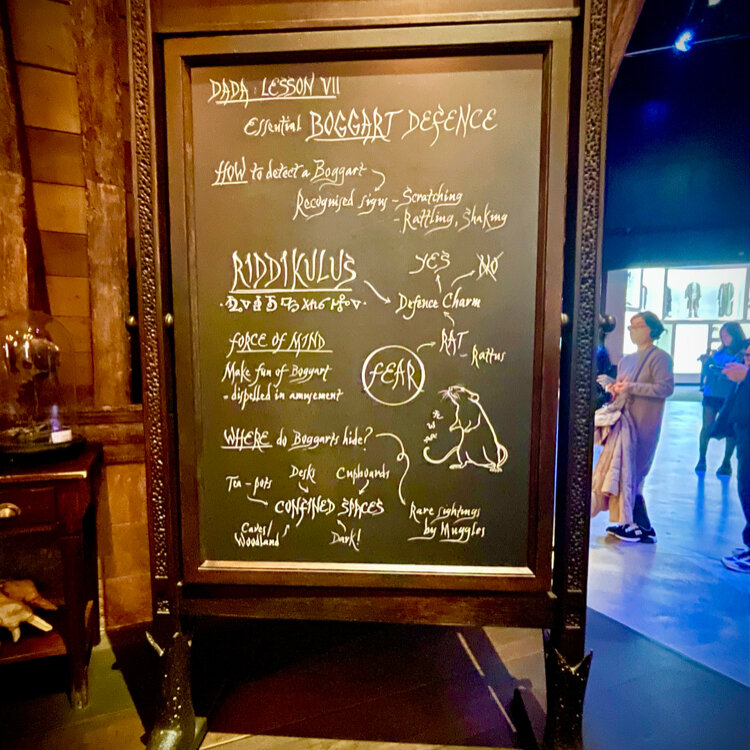 DADA : LESSON VII
Essential BOGGART DEFENCE
HOW to detect a Boggart
Recognised signs - Scratching
- Rattling, Shaking
RIDDIKULUS
YES NO
Defence Charm
FORCE OF MIND
Make fun of Boggart
= dispelled in amusement
FEAR
RAT
- Rattus
WHERE do Boggarts hide?
Tea-pots
Desks
Cupboards
CONFINED SPACES
Caves/
Woodland
Dark!
Rare sightings
by Muggles